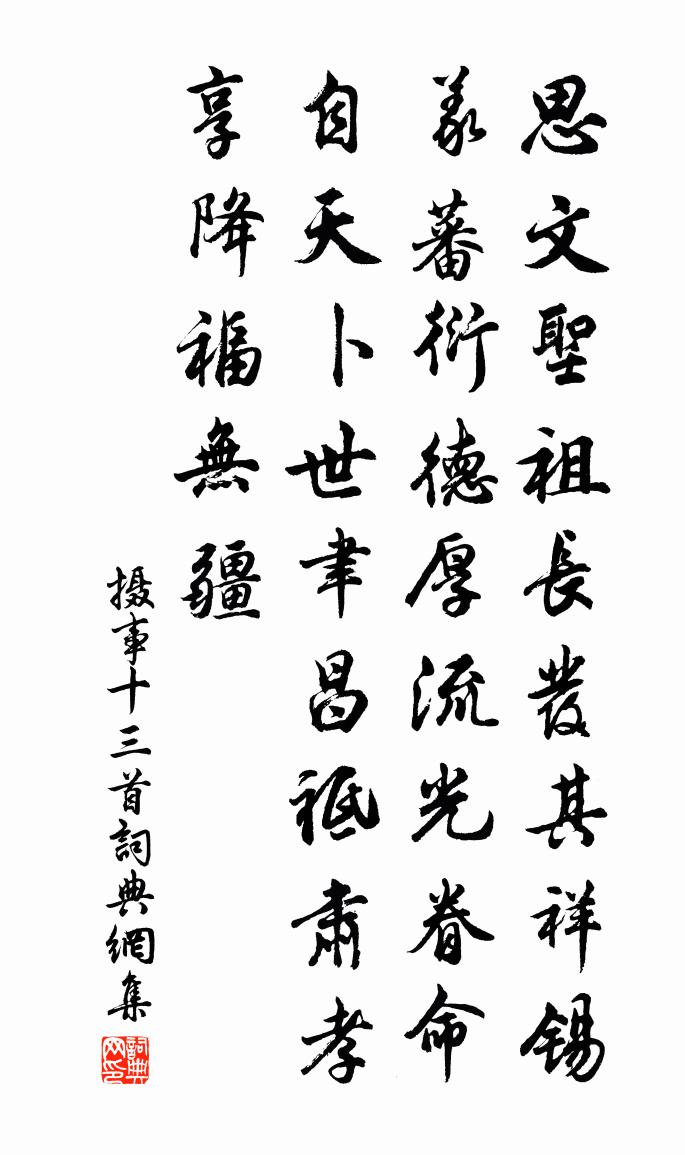 思文聖祖長發其祥錫
羨蕃衍德厚流光眷命
自天卜世聿昌祗肅孝
享降福無疆
摄事十三首詞典網集
詞典网印